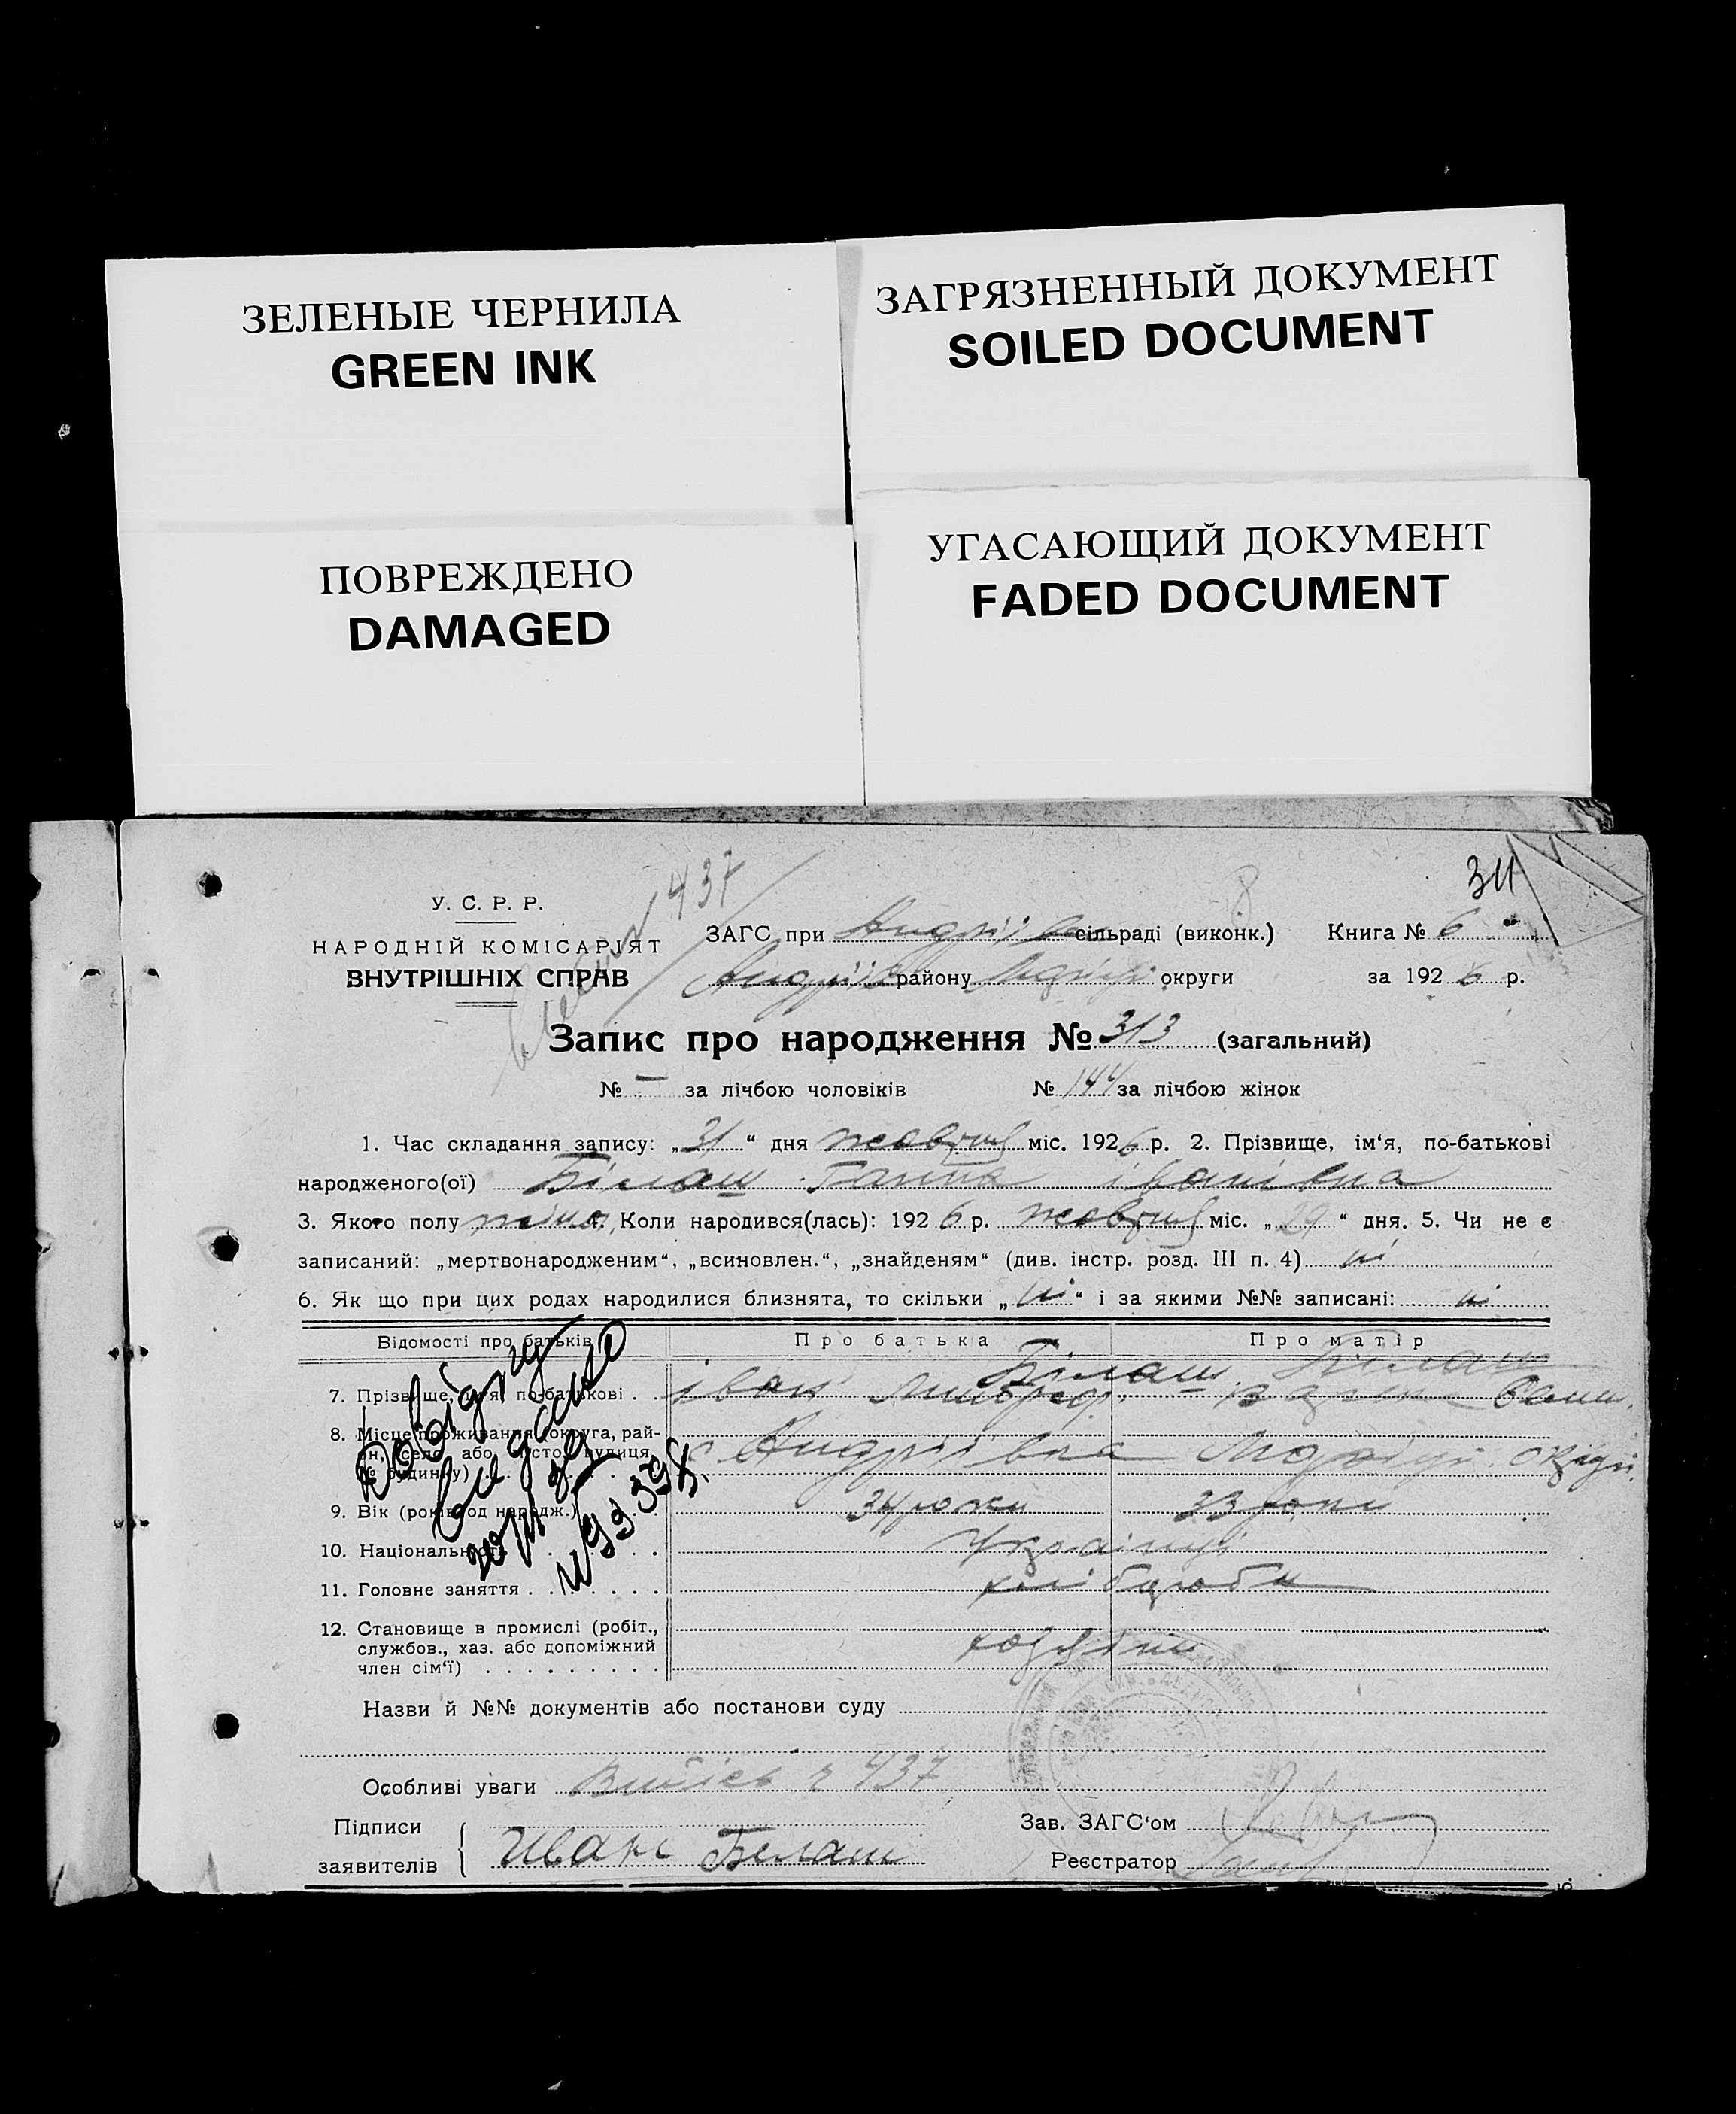 ЗЕЛЕНЫЕ ЧЕРНИЛА
GREEN INK
ЗАГРЯЗНЕННЫЙ ДОКУМЕНТ
SOILED DOCUMENT
ПОВРЕЖДЕНО
DAMAGED
УГАСАЮЩИЙ ДОКУМЕНТ
FADED DOCUMENT
437
34
У. С. Р. Р.
НАРОДНІЙ КОМІСАРІЯТ
ВНУТРІШНІХ СПРАВ
ЗАГС при сільраді (виконк.) Книга № 6
району округи за 1926 р.
Запис про народження № 313 (загальний)
№ — за лічбою чоловіків № 144 за лічбою жінок
1. Час складання запису: „31“ дня жовтня міс. 1926 р. 2. Прізвище, ім‘я, по-батькові
народженого(ої) Білаш Ганна івановна
3. Якого полу жіно. 4. Коли народився(лась): 1926 р. жовтня міс. „29“ дня. 5. Чи не є
записаний: „мертвонародженим“, „всиновлен.“, „знайденям“ (див. інстр. розд. III п. 4) ні
6. Як що при цих родах народилися близнята, то скільки „ні“ і за якими №№ записані: ні
Відомості про батьків Про батька Про матір
Білаш Білаш
7. Прізвище, ім‘я, по-батькові . . іван
8. Місце проживання (округа, рай-
он, село або місто, вулиця,
№ будинку) с Андріївка
9. Вік (років од народж.) 34 роки 33 роки
10. Національність Українці
11. Головне заняття хлібороби
12. Становище в промислі (робіт.,
службов., хаз. або допоміжний
член сім‘ї)
Назви й №№ документів або постанови суду
Особливі уваги 437
Підписи
заявителів Иванъ Белаш
Зав. ЗАГС‘ом
Реєстратор